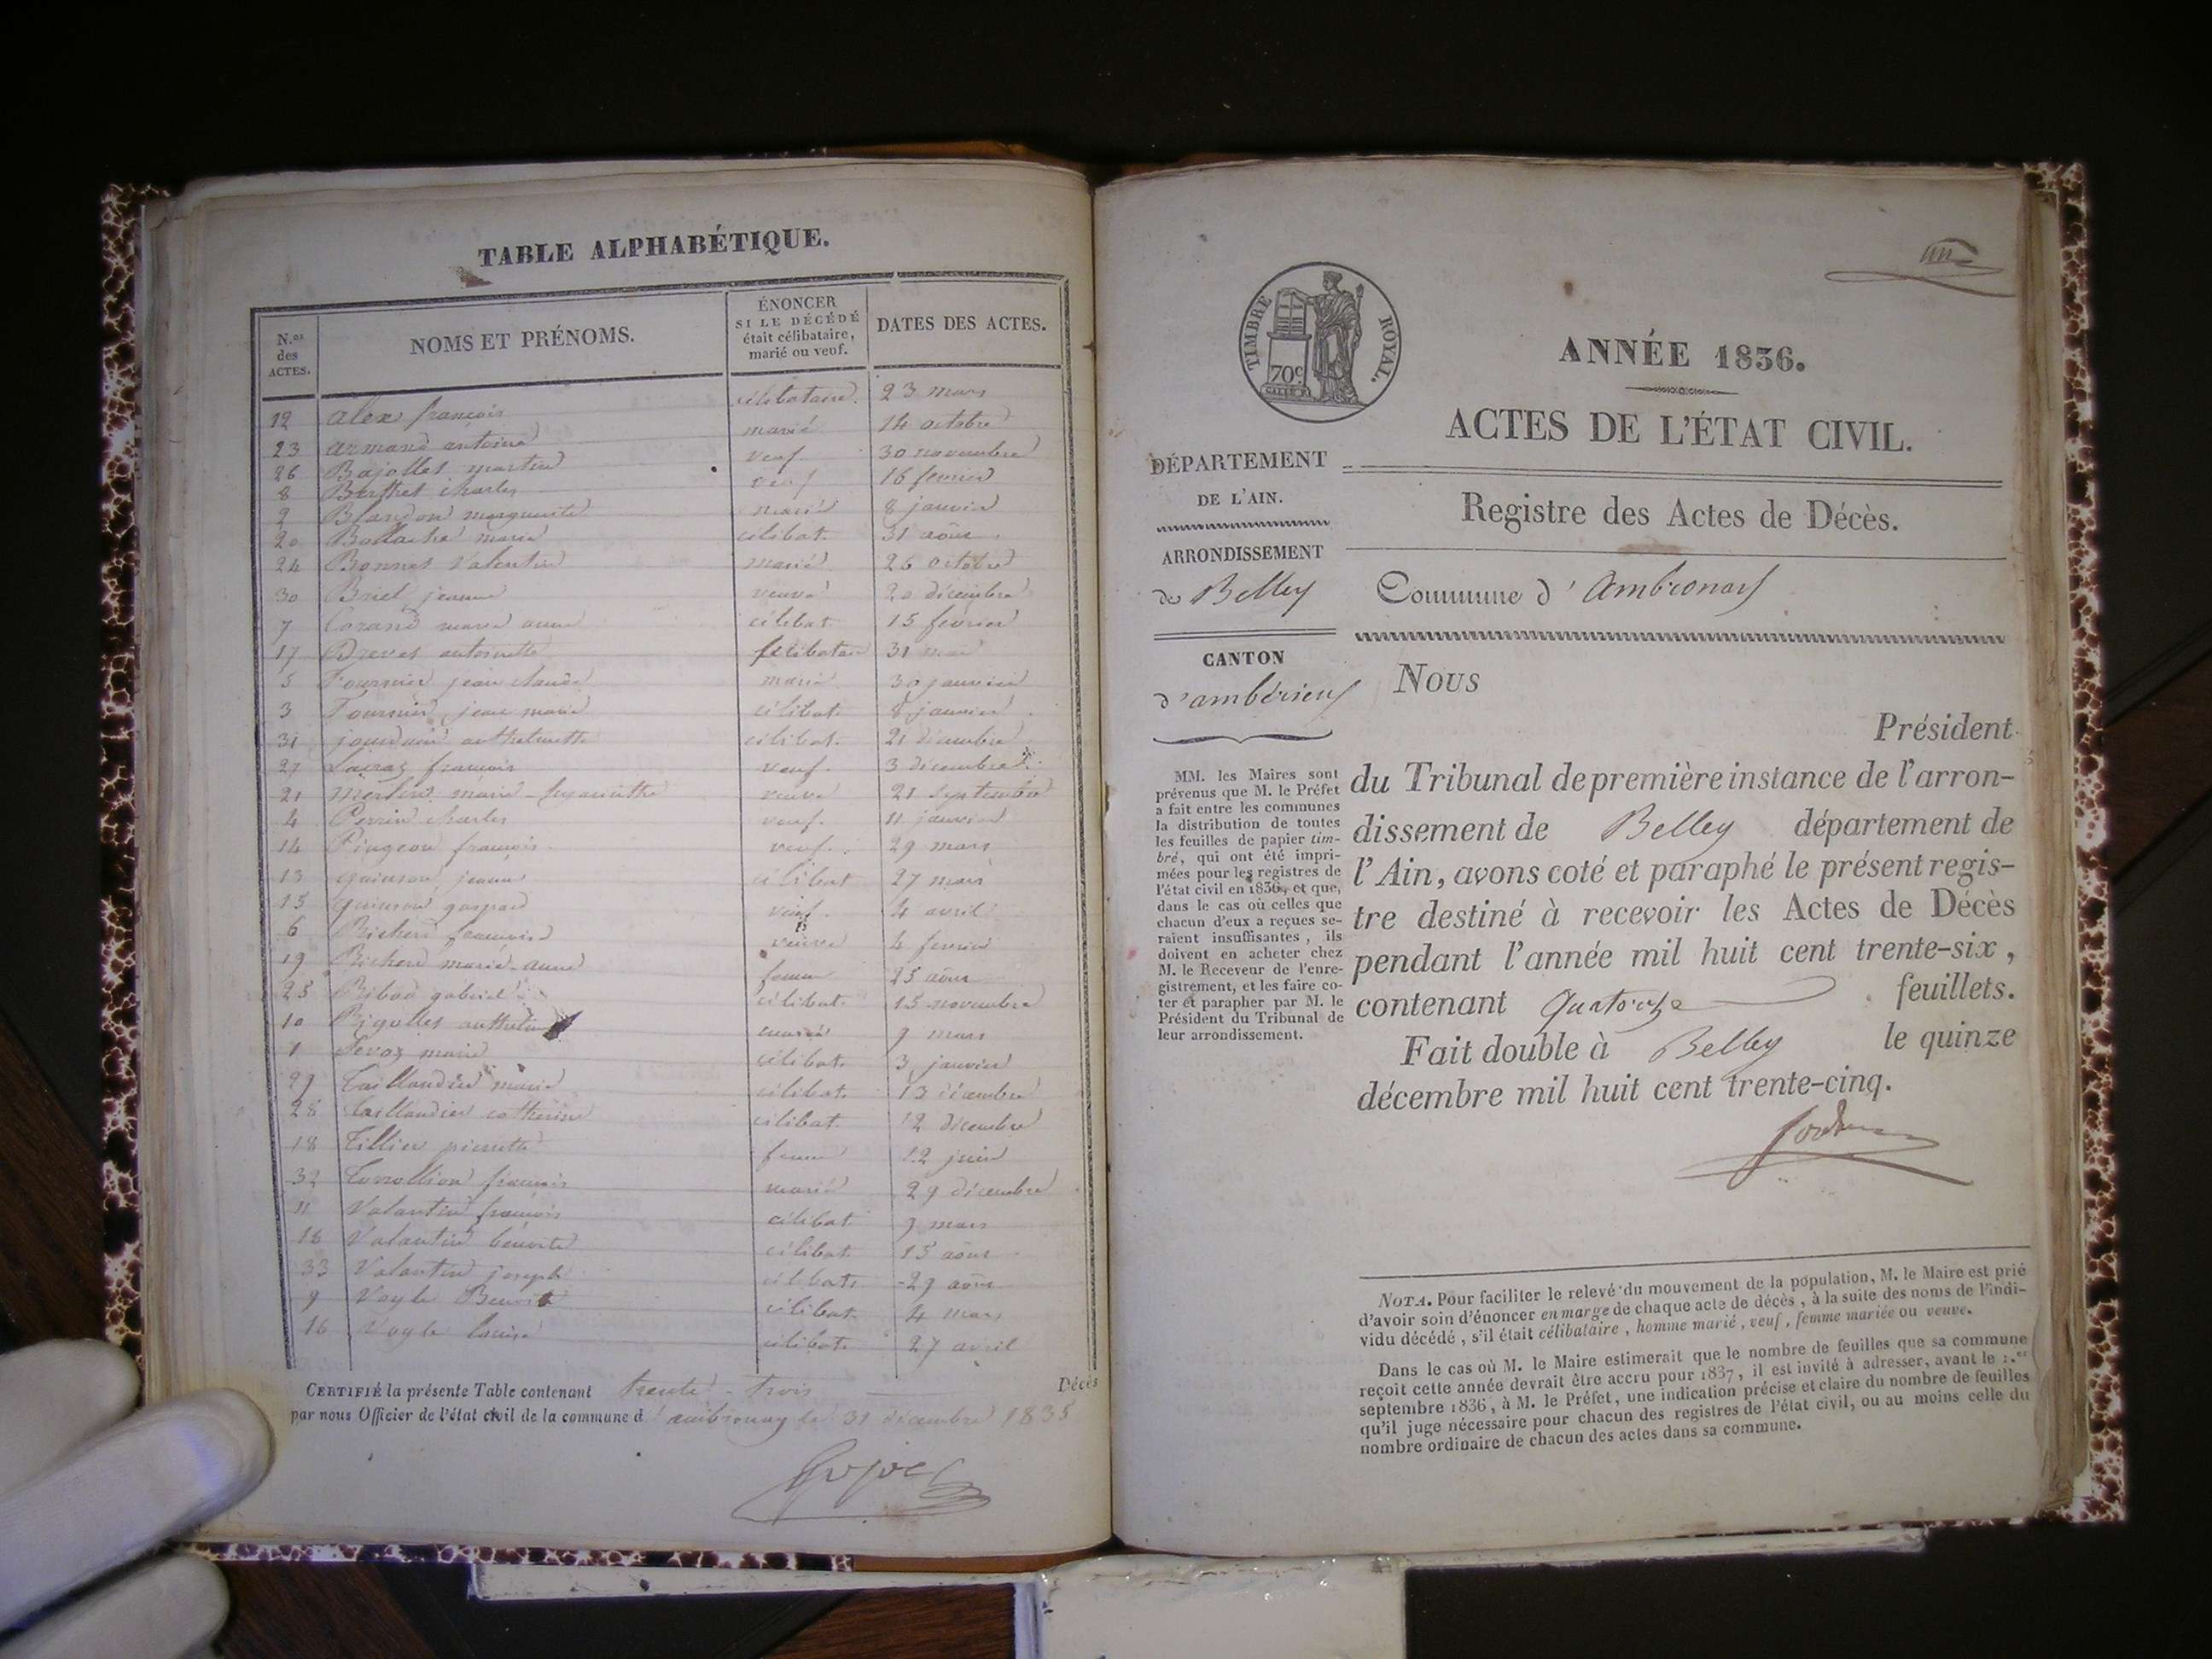 TABLE ALPHABÉTIQUE.
N.os des ACTES. NOMS ET PRÉNOMS. ÉNONCER SI LE DÉCÉDÉ était célibataire, marié ou veuf. DATES DES ACTES.
12 alex françois célibataire 23 mars
23 armand antoine marié 14 octobre
26 Bajollet martin veuf 30 novembre
8 Berthet charles veuf 16 fevrier
2 Blandon marguerite marié 8 janvier
20 marie célibat. 31 août
24 Bonnet Valentin marié 26 octobre
30 Briel jeanne veuve 20 décembre
7 marie anne célibat 15 février
17 Drevet antoinette 31 mai
5 Fournier jean claude marié 30 janvier
3 Fournier jean marie célibat. 8 janvier
31 jourdain célibat. 21 décembre
27 françois veuf. 3 décembre
21 Merlin marie veuve 21 septembre
4 Perrin charles veuf. 11 janvier
14 Pingeon françois veuf. 29 mars
13 quinson jeanne célibat 27 mars
15 quinson gaspard veuf. 4 avril
6 Richerd françoise veuve 4 fevrier
19 Richerd marie-anne femme 25 août
25 Ribod gabriel célibat. 15 novembre
10 Rigollet marié 9 mars
1 Sevoz marie célibat. 3 janvier
29 Taillandier marie célibat. 13 décembre
28 Taillandier catherine célibat. 12 décembre
18 Tillier pierrette femme 12 juin
32 françois marié 29 décembre
11 Valantin françois célibat 9 mars
18 Valantin benoite célibat. 15 août
33 Valantin joseph célibat. 29 août
9 Vayle Benoit célibat. 4 mars
16 Vayle louise célibat. 27 avril
CERTIFIÉ la présente Table contenant trente-trois Décès
par nous Officier de l'état civil de la commune d'ambronay le 31 décembre 1835
TIMBRE ROYAL.
70c
ANNÉE 1836.
ACTES DE L'ÉTAT CIVIL.
Registre des Actes de Décès.
DÉPARTEMENT
DE L'AIN.
ARRONDISSEMENT
de Belley
Commune d'Ambronay
CANTON
d'ambérieux
MM. les Maires sont
prévenus que M. le Préfet
a fait entre les communes
la distribution de toutes
les feuilles de papier tim-
bré, qui ont été impri-
mées pour les registres de
l'état civil en 1836, et que,
dans le cas où celles que
chacun d'eux a reçues se-
raient insuffisantes, ils
doivent en acheter chez
M. le Receveur de l'enre-
gistrement, et les faire co-
ter et parapher par M. le
Président du Tribunal de
leur arrondissement.
Nous
Président
du Tribunal de première instance de l'arron-
dissement de Belley département de
l'Ain, avons coté et paraphé le présent regis-
tre destiné à recevoir les Actes de Décès
pendant l'année mil huit cent trente-six,
contenant quatorze feuillets.
Fait double à Belley le quinze
décembre mil huit cent trente-cinq.
NOTA. Pour faciliter le relevé du mouvement de la population, M. le Maire est prié
d'avoir soin d'énoncer en marge de chaque acte de décès, à la suite des noms de l'indi-
vidu décédé, s'il était célibataire, homme marié, veuf, femme mariée ou veuve.
Dans le cas où M. le Maire estimerait que le nombre de feuilles que sa commune
reçoit cette année devrait être accru pour 1837, il est invité à adresser, avant le 1.er
septembre 1836, à M. le Préfet, une indication précise et claire du nombre de feuilles
qu'il juge nécessaire pour chacun des registres de l'état civil, ou au moins celle du
nombre ordinaire de chacun des actes dans sa commune.